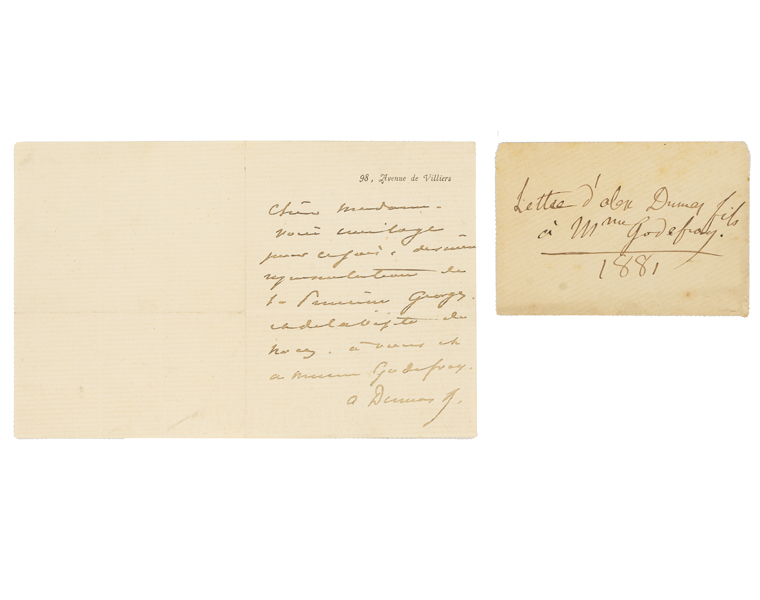 98, Avenue de Villiers
Chère Madame.
Voici une loge
pour ce soir, dernière
représentation de
la Princesse Georges.
et de la Visite de
noces. à vous et
a monsieur Godefroy.
A Dumas f.
Lettre d'alex Dumas fils
à Mme Godefroy.
1881